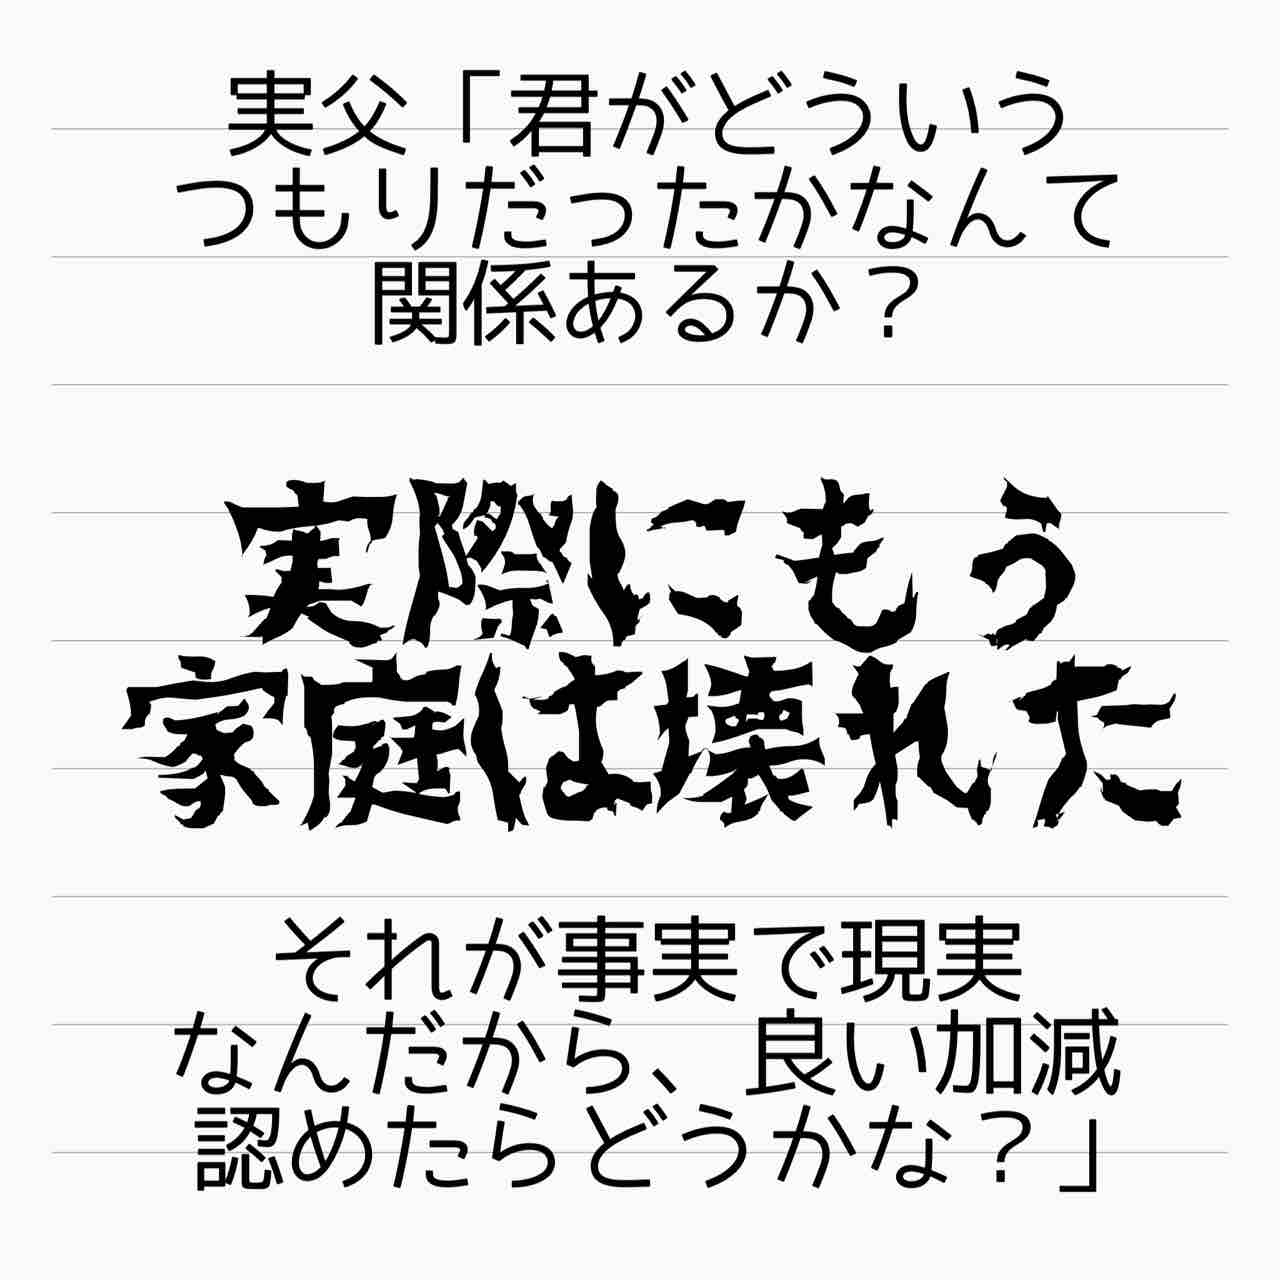 実父「君がどういう
つもりだったかなんて
関係あるか？
実際にもう
家庭は壊れた
それが事実で現実
なんだから、良い加減
認めたらどうかな？」